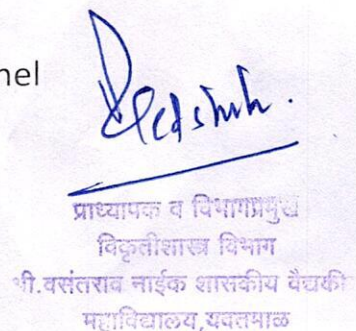 nel
प्राध्यापक व विभागप्रमुख
विकृतीशास्त्र विभाग
श्री.वसंतराव नाईक शासकीय वैद्यकी
महाविद्यालय,यवतमाळ